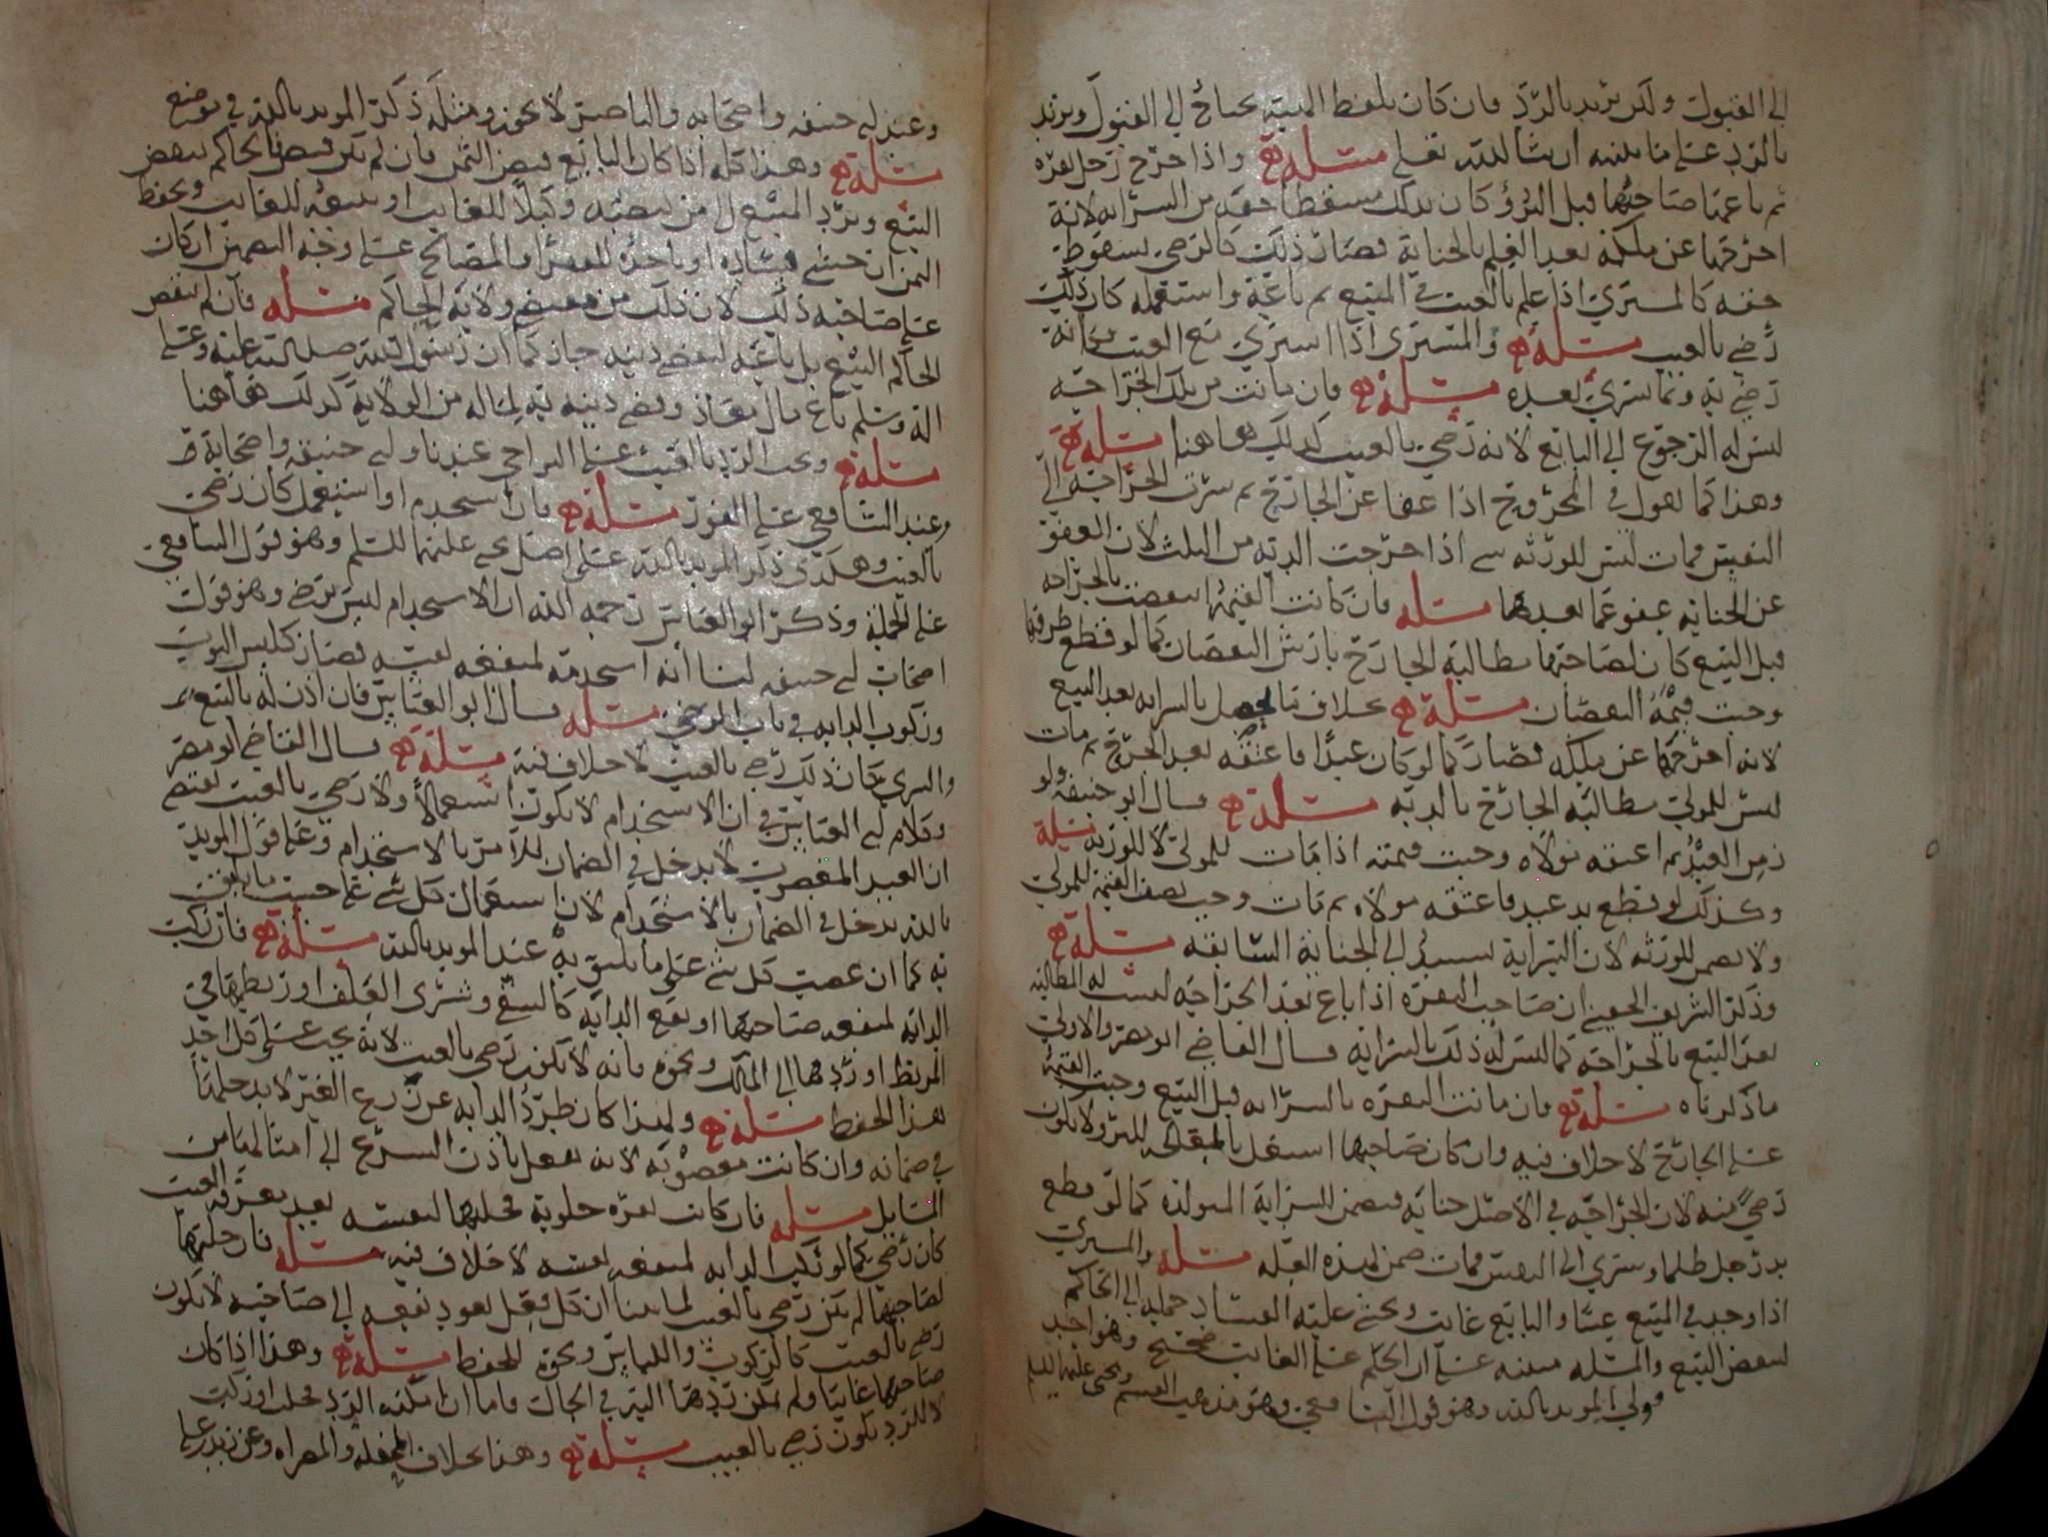 إلى القبول ولكن يرتد بالرد فإن كان بلفظ الهبة يحتاج إلى القبول ويرتد
بالرد على ما نبينه إن شا الله تعلى مسئلة وإذا جرح رجل بقرة
ثم باعها صاحبها قبل البرؤ كان بذلك مسقطا حقه من السراية لأنه
اخرجها عن ملكه بعد العلم بالجناية فصار ذلك كالرضى بسقوط
حقه كالمشتري إذا علم بالعيب في المبيع ثم باعه واستعمله كان ذلك
رضى بالعيب مسئلة والمشتري إذا اشترى مع العيب فكأنه
رضي به وبما يسري بعده مسئلة فإن ماتت من تلك الجراحة
ليس له الرجوع إلى البايع لأنه رضي بالعيب كذلك هاهنا مسئلة
وهذا كما نقول في المجروح إذا عفا عن الجارح ثم سرت الجراحة إلى
النفس فمات ليس للورثة شي إذا خرجت الدية من الثلث لأن العفو
عن الجناية عفو عما بعدها مسئلة فإن كانت القيمة انتقصت بالجراحة
قبل البيع كان لصاحبها مطالبة الجارح بارش النقصان كما لو قطع طرفها
وجبت قيمة النقصان مسئلة بخلاف ما يحصل بالسراية بعد البيع
لأنه اخرجها عن ملكه فصار كما لو كان عبدا فاعتقه بعد الجرح ثم مات
ليس للمولى مطالبة الجارح بالدية مسئلة قال أبو حنيفة ولو
رمى العبد ثم اعتقه مولاه وجبت قيمته إذا مات للمولى لا للورثة مسئلة
وكذلك لو قطع يد عبد فاعتقه مولاه ثم مات وجب نصف القيمة للمولى
ولا يضمن للورثة لأن السراية تستند إلى الجناية السابقة مسئلة
وذكر الشريف الحسني إن صاحب البقرة إذا باع بعد الجراحة ليست له المطالبة
بعد البيع بالجراحة كما ليس له ذلك بالسراية قال القاضي أبو مضر والاولى
ما ذكرناه مسئلة فإن ماتت البقرة بالسراية قبل البيع وجبت القيمة
على الجارح لا خلاف فيه وإن كان صاحبها اشتغل بالمعالجة للبرؤ لا يكون
رضى منه لأن الجراحة في الأصل جناية فيضمن السراية المتولدة كما لو قطع
يد رجل ظلما وسرى إلى النفس فمات ضمن لهذه العلة مسئلة والمشتري
إذا وجد في المبيع عيبا والبايع غايب وخشي عليه الفساد حمله إلى الحاكم
لينقض البيع والمسئلة مبنية على ان الحكم على الغايب صحيح وهو احد
قولي المؤيد بالله وهو قول الشافعي وهو مذهب القسم ويحيى عليهما السلم
وعند أبي حنيفة وأصحابه والناصر لا يجوز ومثله ذكر المؤيد بالله في موضع
مسئلة وهذا كله إذا كان البايع قبض الثمن فإن لم يكن قبض فالحاكم ينقض
البيع ويرد المبيع إلى من ينصبه وكيلا للغايب أو يبيعه للغايب ويحفظ
الثمن إن خشي فساده أو ياخذه للفقرا والمصالح على وجه التضمين إن كان
على صاحبه ذلك لأن ذلك من مقتضى ولاية الحاكم مسئلة فإن لم ينقض
الحاكم البيع بل باعه ليقضي دينه جاز كما أن رسول الله صلى الله عليه وعلى
آله وسلم باع مال معاذ وقضى دينه به لما له من الولاية كذلك هاهنا
مسئلة ويجب الرد بالعيب على التراخي عندنا وأبي حنيفة وأصحابه
وعند الشافعي على الفور مسئلة فإن استخدم أو استعمل كان رضى
بالعيب وهكذى ذكر المؤيد بالله على أصل يحيى عليهما السلم وهو قول الشافعي
على الجملة وذكر أبو العباس رحمه الله أن الاستخدام ليس برضى وهو قول
أصحاب أبي حنيفة لنا أنه استخدمه لمنفعة نفسه فصار كلبس الثوب
وركوب الدابة في باب الرضى مسئلة قال أبو العباس فإن اذن له بالبيع
والشرى كان ذلك رضى بالعيب لا خلاف فيه مسئلة قال القاضي أبو مضر
وكلام أبي العباس في أن الاستخدام لا يكون استعمالا ولا رضى بالعيب يقتضي
أن العبد المغصوب لا يدخل في الضمان للآمر بالاستخدام وعلى قول المؤيد
بالله يدخل في الضمان بالاستخدام لأن استعمال كل شي على حسب ما يليق
به كما أن غصب كل شي على ما يليق به عند المؤيد بالله مسئلة فإن ركب
الدابة لمنفعة صاحبها أو نفع الدابة كالسقي وشرى العلف أو ربطها في
المربط أو ردها إلى المالك ونحوه فإنه لا يكون رضى بالعيب لأنه يجب على كل أحد
هذا الحفظ مسئلة ولهذا كان طرد الدابة عن زرع الغير لا يدخلها
في ضمانه وإن كانت مغصوبة لأنه يفعل باذن الشرع إلى
مسئلة فإن كانت بقرة حلوبة فحلبها لنفسه بعد معرفة العيب
كان رضى كما لو ركب الدابة لمنفعة نفسه لا خلاف فيه مسئلة فإن حلبها
لصاحبها لم يكن رضى بالعيب لما بينا ان كل فعل يعود نفعه إلى صاحبه لا يكون
رضى بالعيب كالركوب واللباس ونحوه للحفظ مسئلة وهذا إذا كان
صاحبها غايبا ولم يمكن ردها اليه في الحال فاما ان امكنه الرد فحلب أو ركب
لا للرد يكون رضى بالعيب مسئلة وهذا بخلاف المحفلة والمصراة وعن زيد بن علي